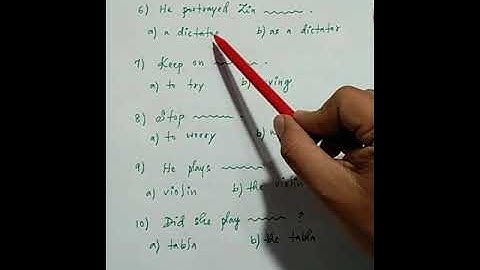 6) He portrayed Zia ~~~~ .
a) a dictator b) as a dictator
7) Keep on ~~~~ .
a) to try b)
8) Stop ~~~~ .
a) to worry b)
9) He plays ~~~~ .
a) violin b) the violin
10) Did she play ~~~~ ?
a) tabla b) the tabla